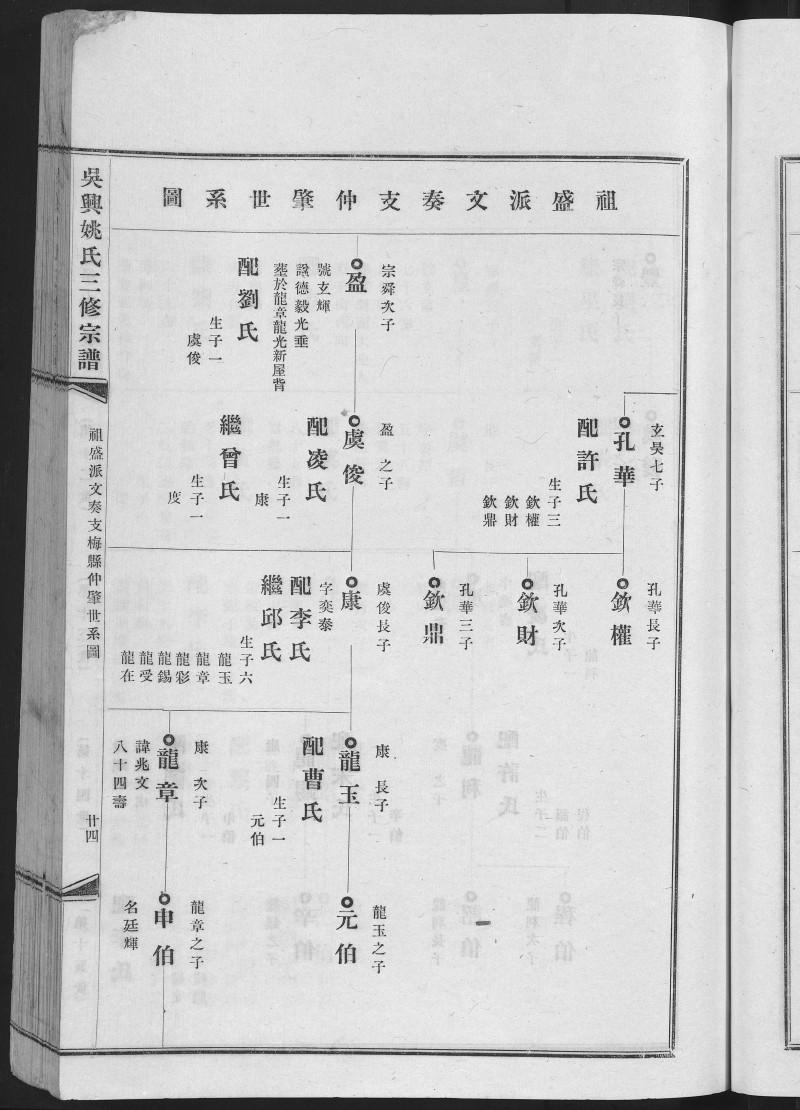 祖盛派文奏支仲肇世系圖
玄昊七子
孔華
配許氏
生子三
欽權
欽財
欽鼎
宗舜次子
盈
號玄輝
諡德毅光垂
塟於龍章龍光新屋背
配劉氏
生子一
虞俊
盈之子
虞俊
配凌氏
生子一
康
繼曾氏
生子一
度
孔華長子
欽權
孔華次子
欽財
孔華三子
欽鼎
虞俊長子
康
字奕泰
配李氏
繼邱氏
生子六
龍玉
龍章
龍彩
龍錫
龍受
龍在
康長子
龍玉
配曹氏
生子一
元伯
康次子
龍章
諱兆文
八十四壽
龍玉之子
元伯
龍章之子
申伯
名廷輝
吳興姚氏三修宗譜
祖盛派文奏支梅縣仲肇世系圖
廿四